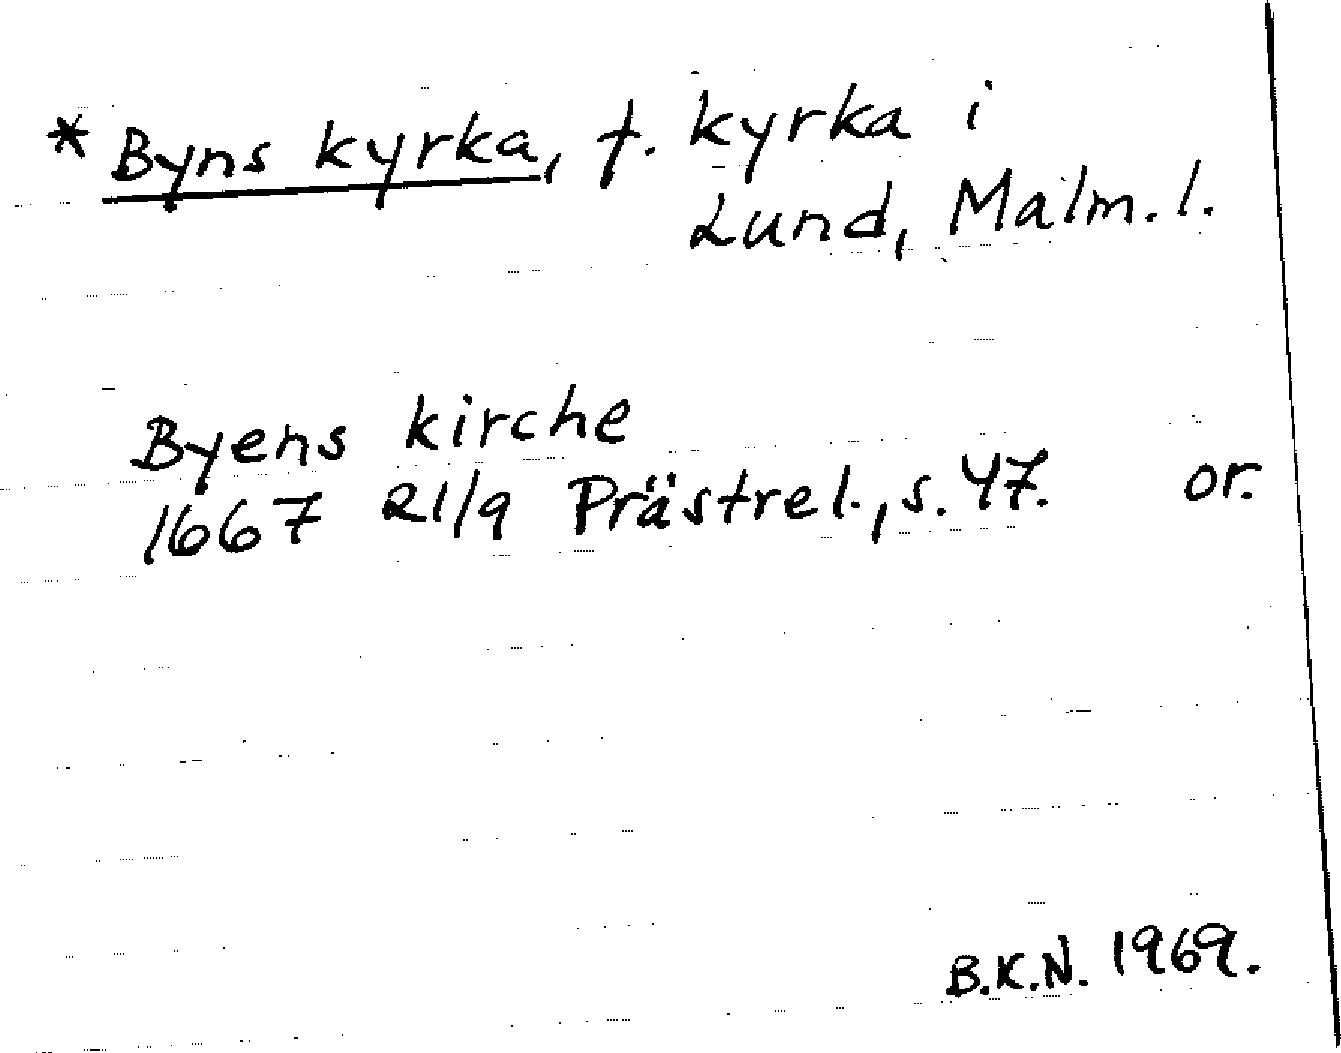 * Byns kyrka, f. kyrka i
Lund, Malm. l.
Byens kirche
1667 21/9 Prästrel., s. 47. or.
B.K.N. 1969.